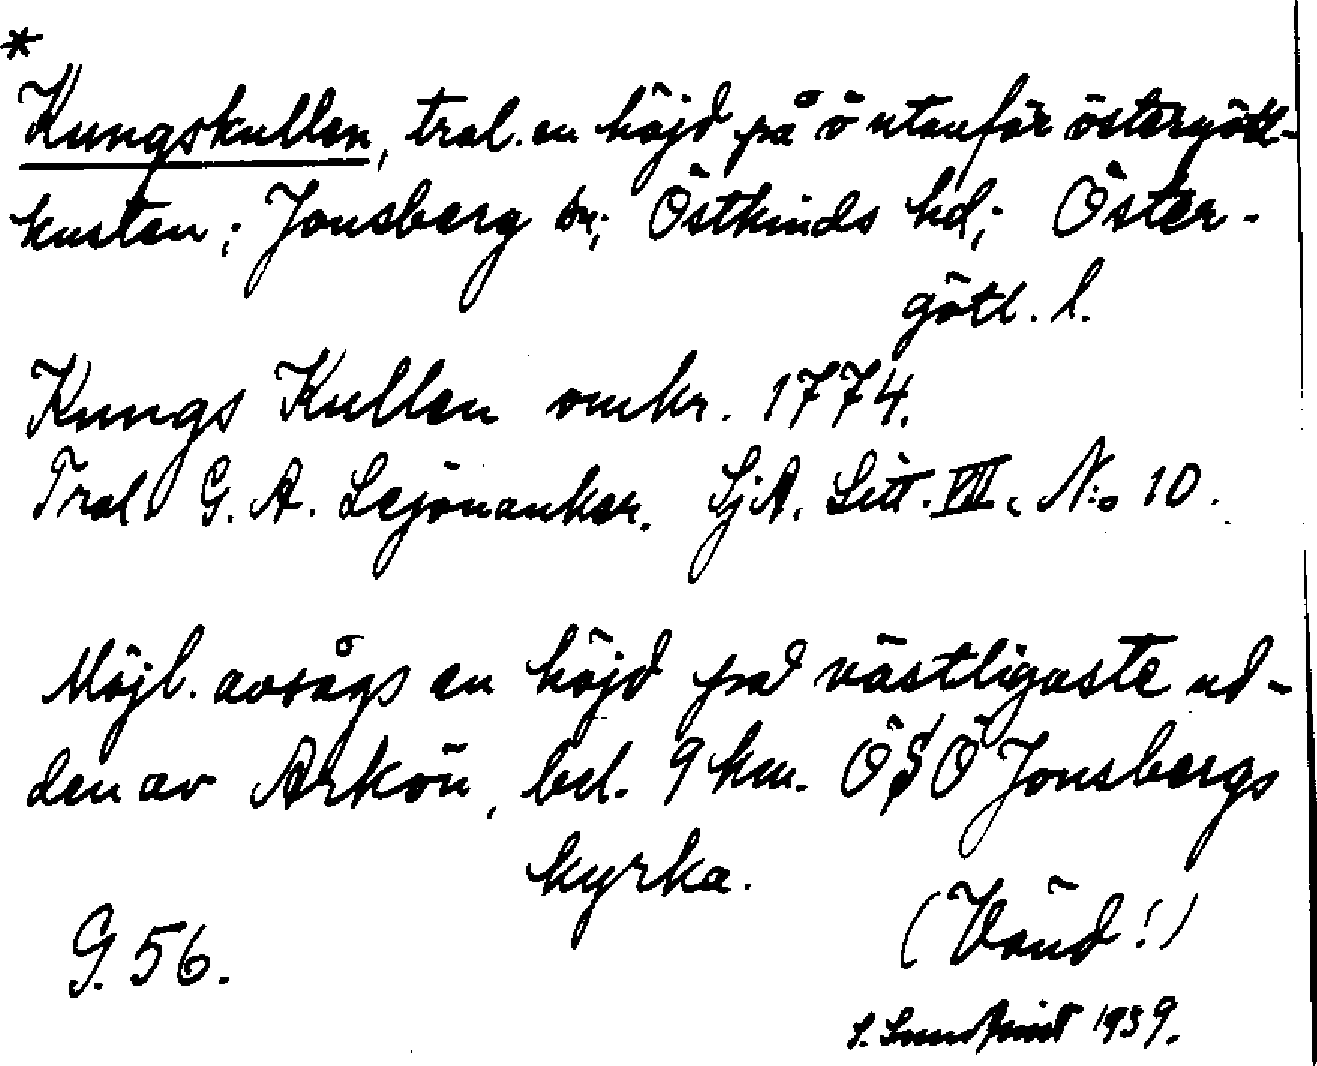 *
Kungskullen, trol. en höjd på ö utanför östergötl-
kusten; Jonsberg sn; Östkinds hd; Öster-
götl. l.
Kungs Kullen omkr. 1774.
Trol G. A. Lejonanker. SjA. Litt. VIII. N:o 10.
Möjl. avsågs en höjd på västligaste ud-
den av Arkön, bel. 9 km. ÖSÖ Jonsbergs
kyrka.
(Vänd!)
G. 56.
S. Sundkvist 1939.